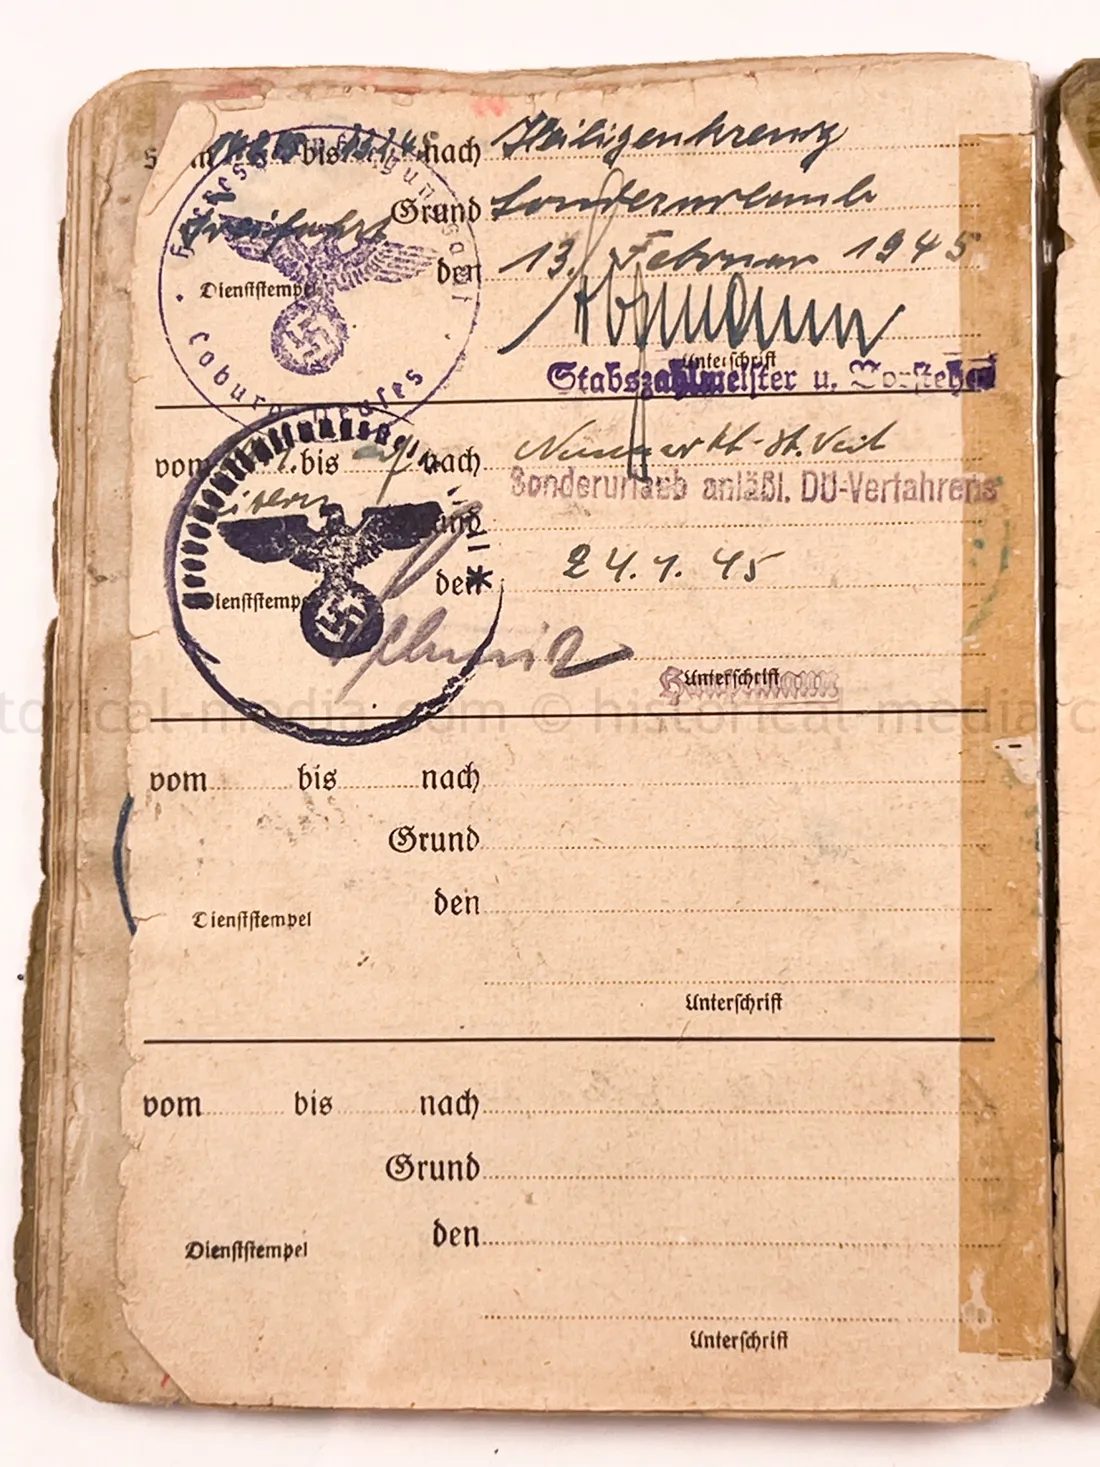 bis nach Heiligenkreuz
Freifahrt Grund Sonderurlaub
Dienststempel den 13. Februar 1945
Unterschrift
Stabszahlmeister u. Vorsteher
Coburg
vom bis nach Neumarkt-St. Veit
Sonderurlaub anläßl. DU-Verfahrens
Grund
Dienststempel den 24. 4. 45
Unterschrift
historical-media.com © historical-media.com
vom bis nach
Grund
den
Dienststempel
Unterschrift
vom bis nach
Grund
den
Dienststempel
Unterschrift